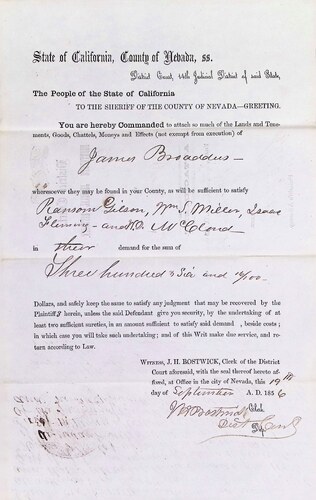 State of California, County of Nevada, ss.
District Court, 14th Judicial District of said State,
The People of the State of California
TO THE SHERIFF OF THE COUNTY OF NEVADA—GREETING.
You are hereby Commanded to attach so much of the Lands and Tene-
ments, Goods, Chattels, Moneys and Effects (not exempt from execution) of
James Broaddus —
wheresoever they may be found in your County, as will be sufficient to satisfy
Ransom Gilson, Wm S. Miller, Isaac
Fleming - and D. McCloud
in their demand for the sum of
Three hundred & Six and /100
Dollars, and safely keep the same to satisfy any judgment that may be recovered by the
Plaintiffs herein, unless the said Defendant give you security, by the undertaking of at
least two sufficient sureties, in an amount sufficient to satisfy said demand, beside costs;
in which case you will take such undertaking; and of this Writ make due service, and re-
turn according to Law.
WITNESS, J. H. BOSTWICK, Clerk of the District
Court aforesaid, with the seal thereof hereto af-
fixed, at Office in the city of Nevada, this 19th
day of September A. D. 1856
J H Bostwick Clerk.